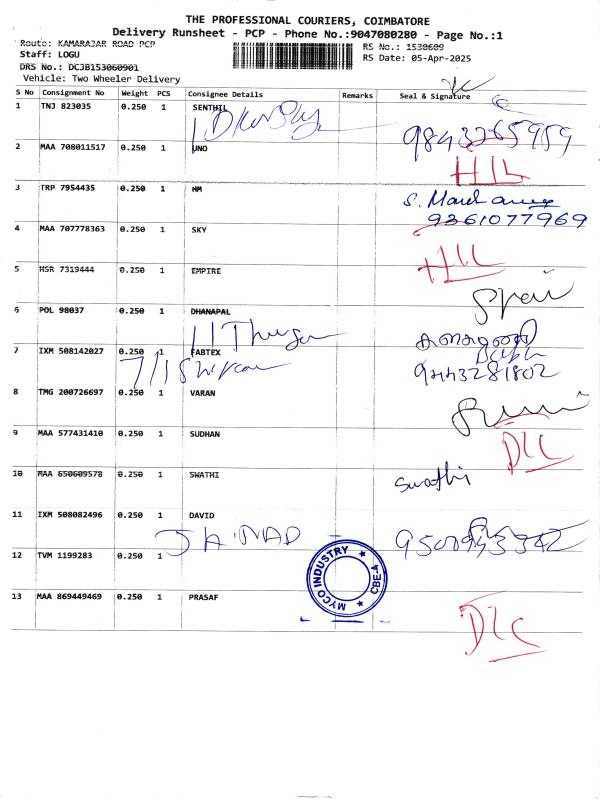 THE PROFESSIONAL COURIERS, COIMBATORE
Delivery Runsheet - PCP - Phone No.:9047080280 - Page No.:1
Route: KAMARAJAR ROAD PCP
RS No.: 1530609
Staff: LOGU
RS Date: 05-Apr-2025
DRS No.: DCJB153060901
Vehicle: Two Wheeler Delivery
S No Consignment No Weight PCS Consignee Details Remarks Seal & Signature
1 TNJ 823035 0.250 1 SENTHIL
9843265959
2 MAA 708011517 0.250 1 UNO
3 TRP 7954435 0.250 1 HM
9361077969
4 MAA 707778363 0.250 1 SKY
5 HSR 7319444 0.250 1 EMPIRE
6 POL 98037 0.250 1 DHANAPAL
7 IXM 508142027 0.250 1 FABTEX
9443281802
8 TMG 200726697 0.250 1 VARAN
9 MAA 577431410 0.250 1 SUDHAN
DLC
10 MAA 650609578 0.250 1 SWATHI
Swathi
11 IXM 508082496 0.250 1 DAVID
12 TVM 1199283 0.250 1
MYCO INDUSTRY ★ CBE-4 ★
13 MAA 869449469 0.250 1 PRASAF
DLC